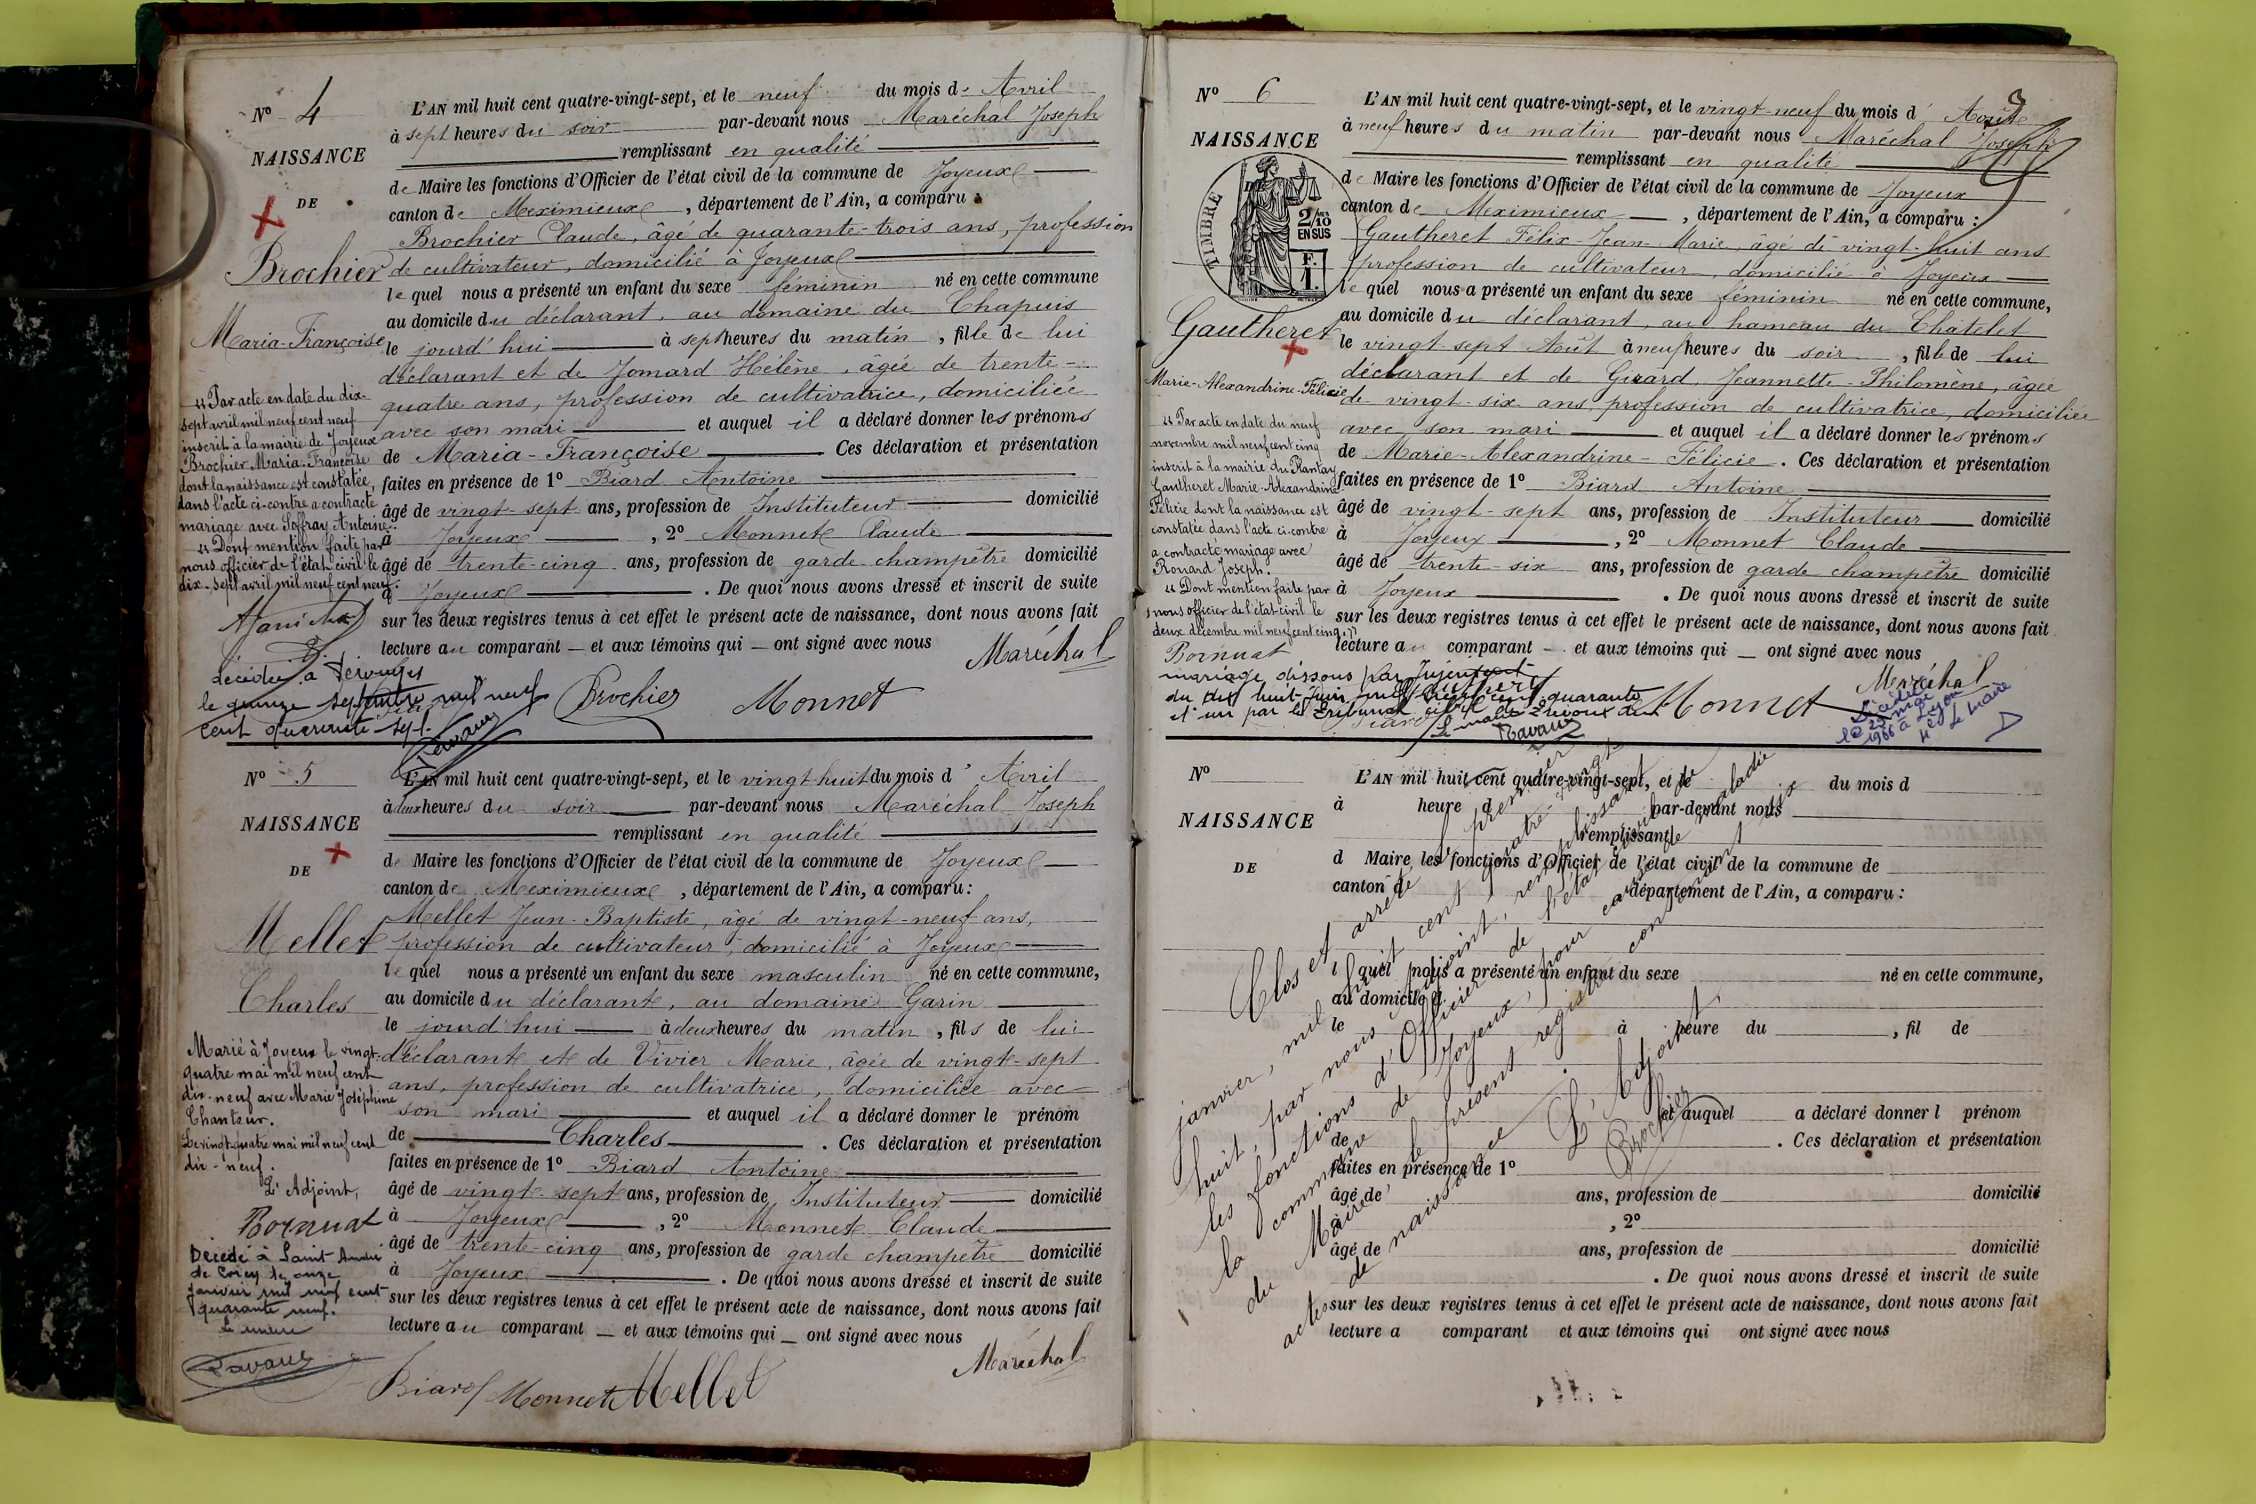 N° 4
NAISSANCE
DE
Brochier
Maria-Françoise
"Par acte en date du dix-
sept avril mil neuf cent neuf
inscrit à la mairie de Joyeux
Brochier Maria-Françoise
dont la naissance est constatée,
dans l'acte ci-contre a contracté
mariage avec Soffray Antoine.
"Dont mention faite par
nous officier de l'état civil le
dix-sept avril mil neuf cent neuf.
décédée à Pérouges
le quinze septembre mil neuf
cent quarante-sept.
L'AN mil huit cent quatre-vingt-sept, et le neuf du mois de Avril
à sept heures du soir par-devant nous Maréchal Joseph
remplissant en qualité
de Maire les fonctions d'Officier de l'état civil de la commune de Joyeux
canton de Meximieux, département de l'Ain, a comparu :
Brochier Claude, âgé de quarante-trois ans, profession
de cultivateur, domicilié à Joyeux
lequel nous a présenté un enfant du sexe féminin né en cette commune
au domicile du déclarant, au domaine du Chapuis
le jourd'hui à sept heures du matin, fille de lui
déclarant et de Jomard Hélène, âgée de trente-
quatre ans, profession de cultivatrice, domiciliée
avec son mari et auquel il a déclaré donner les prénoms
de Maria-Françoise Ces déclaration et présentation
faites en présence de 1° Biard Antoine
âgé de vingt-sept ans, profession de Instituteur domicilié
à Joyeux, 2° Monnet Claude
âgé de trente-cinq ans, profession de garde champêtre domicilié
à Joyeux. De quoi nous avons dressé et inscrit de suite
sur les deux registres tenus à cet effet le présent acte de naissance, dont nous avons fait
lecture au comparant et aux témoins qui ont signé avec nous
Maréchal
Brochier Monnet
N° 5
NAISSANCE
DE
Mellet
Charles
Marié à Joyeux le vingt-
quatre mai mil neuf cent
dix-neuf avec Marie Joséphine
Chanteur.
Le vingt-quatre mai mil neuf cent
dix-neuf.
L'Adjoint,
Bornuat
Décédé à Saint André
de Corcy le onze
janvier mil neuf cent
quarante neuf.
le maire
Ravaux
L'AN mil huit cent quatre-vingt-sept, et le vingt huit du mois d'Avril
à deux heures du soir par-devant nous Maréchal Joseph
remplissant en qualité
de Maire les fonctions d'Officier de l'état civil de la commune de Joyeux
canton de Meximieux, département de l'Ain, a comparu :
Mellet Jean-Baptiste, âgé de vingt-neuf ans,
profession de cultivateur, domicilié à Joyeux
lequel nous a présenté un enfant du sexe masculin né en cette commune,
au domicile du déclarant, au domaine Garin
le jourd'hui à deux heures du matin, fils de lui
déclarant et de Vivier Marie, âgée de vingt-sept
ans, profession de cultivatrice, domiciliée avec
son mari et auquel il a déclaré donner le prénom
de Charles. Ces déclaration et présentation
faites en présence de 1° Biard Antoine
âgé de vingt-sept ans, profession de Instituteur domicilié
à Joyeux, 2° Monnet Claude
âgé de trente-cinq ans, profession de garde champêtre domicilié
à Joyeux. De quoi nous avons dressé et inscrit de suite
sur les deux registres tenus à cet effet le présent acte de naissance, dont nous avons fait
lecture au comparant et aux témoins qui ont signé avec nous
Maréchal
Biard Monnet Mellet
3
N° 6
NAISSANCE
TIMBRE
2/10
EN SUS
F.
1.
Gautheret
Marie-Alexandrine-Félicie
"Par acte en date du neuf
novembre mil neuf cent cinq
inscrit à la mairie du Plantay
Gautheret Marie-Alexandrine
Félicie dont la naissance est
constatée dans l'acte ci-contre
a contracté mariage avec
Ronard Joseph.
"Dont mention faite par
nous officier de l'état-civil le
deux décembre mil neuf cent cinq."
Bornuat
mariage dissous par jugement
du dix huit juin mil neuf cent quarante
et un par le Tribunal civil de Trévoux
Le maire
Ravaux
L'AN mil huit cent quatre-vingt-sept, et le vingt-neuf du mois d'Août
à neuf heures du matin par-devant nous Maréchal Joseph
remplissant en qualité
de Maire les fonctions d'Officier de l'état civil de la commune de Joyeux
canton de Meximieux, département de l'Ain, a comparu :
Gautheret Félix-Jean-Marie, âgé de vingt-huit ans
profession de cultivateur, domicilié à Joyeux
lequel nous a présenté un enfant du sexe féminin né en cette commune,
au domicile du déclarant, au hameau du Chatelet
le vingt-sept Août à neuf heures du soir, fille de lui
déclarant et de Girard Jeannette-Philomène, âgée
de vingt-six ans, profession de cultivatrice, domiciliée
avec son mari et auquel il a déclaré donner les prénoms
de Marie-Alexandrine-Félicie. Ces déclaration et présentation
faites en présence de 1° Biard Antoine
âgé de vingt-sept ans, profession de Instituteur domicilié
à Joyeux, 2° Monnet Claude
âgé de trente-six ans, profession de garde champêtre domicilié
à Joyeux. De quoi nous avons dressé et inscrit de suite
sur les deux registres tenus à cet effet le présent acte de naissance, dont nous avons fait
lecture au comparant et aux témoins qui ont signé avec nous
Maréchal
Gautheret Monnet
Biard
Décédée
le 22 mai
1966 à Lyon
4e
Le Maire
N°
NAISSANCE
DE
L'AN mil huit cent quatre-vingt-sept, et le du mois d
à heure d par-devant nous
remplissant
d Maire les fonctions d'Officier de l'état civil de la commune de
canton de département de l'Ain, a comparu :
l quel nous a présenté un enfant du sexe né en cette commune,
au domicile d
le à heure du , fil de
et auquel a déclaré donner l prénom
de . Ces déclaration et présentation
faites en présence de 1°
âgé de ans, profession de domicilié
à , 2°
âgé de ans, profession de domicilié
. De quoi nous avons dressé et inscrit de suite
sur les deux registres tenus à cet effet le présent acte de naissance, dont nous avons fait
lecture a comparant et aux témoins qui ont signé avec nous
Clos et arrêté le premier
janvier, mil huit cent quatre vingt
huit, par nous Adjoint, remplissant
les fonctions d'Officier de l'état civil de
la commune de Joyeux, pour cause de maladie
du Maire, le présent registre contenant six
actes de naissance.
L'Adjoint,
Brochier